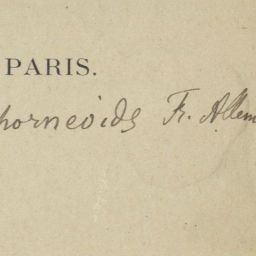 PARIS.
horneoides Fr. Allem